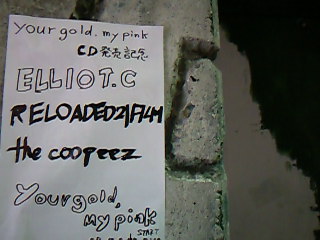 your gold, my pink
CD発売記念
ELLIOT.C
RELOADED
the coopeez
Your gold,
my pink
START